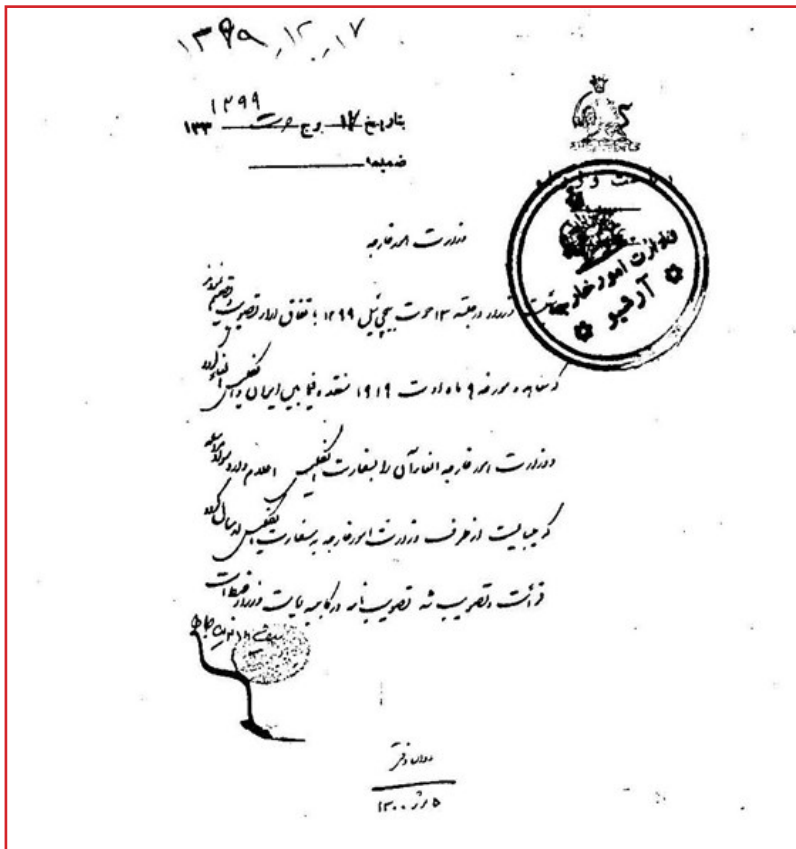 ۱۳۹۹,۱۲,۱۷
۱۲۹۹
بتاریخ ۱۲ برج حوت ۱۳۳
ضمیمه
وزارت امور خارجه
آرشیو
وزارت امور خارجه
وزراء در جلسه ۱۲ حوت پیچی ئیل ۱۲۹۹ با تفاق آراء تصویب و تصمیم نمودند
که معاهده مورخه ۹ ماه اوت ۱۹۱۹ منعقده فیما بین ایران و انگلیس الغاء گردد
و وزارت امور خارجه الغاء آن را بسفارت انگلیس اعلام دارد
که میبایست از طرف وزارت امور خارجه به سفارت انگلیس ارسال گردد
قرائت و تصویب شد تصویب نامه در کابینه ریاست وزراء ضبط است
۱۳۰۰